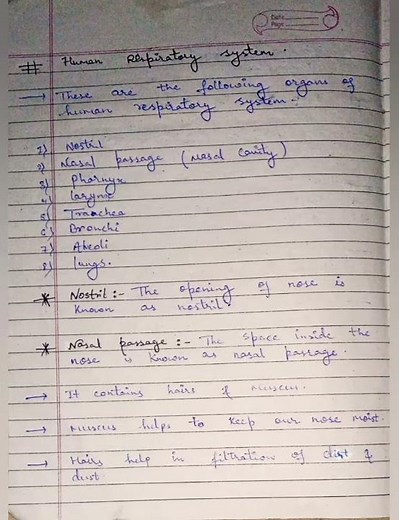 Date
Page
# Human Respiratory System.
→ These are the following organs of
human respiratory system.
1) Nostril
2) Nasal passage (Nasal cavity)
3) Pharnyx
4) Larynx
5) Traachea
6) Bronchi
7) Aleoli
8) lungs.
* Nostril :- The opening of nose is
known as nostril.
* Nasal passage :- The space inside the
nose is known as nasal passage.
→ It contains hairs & Muscus.
→ Muscus helps to keep our nose moist.
→ Hairs help in filtration of dirt &
dust